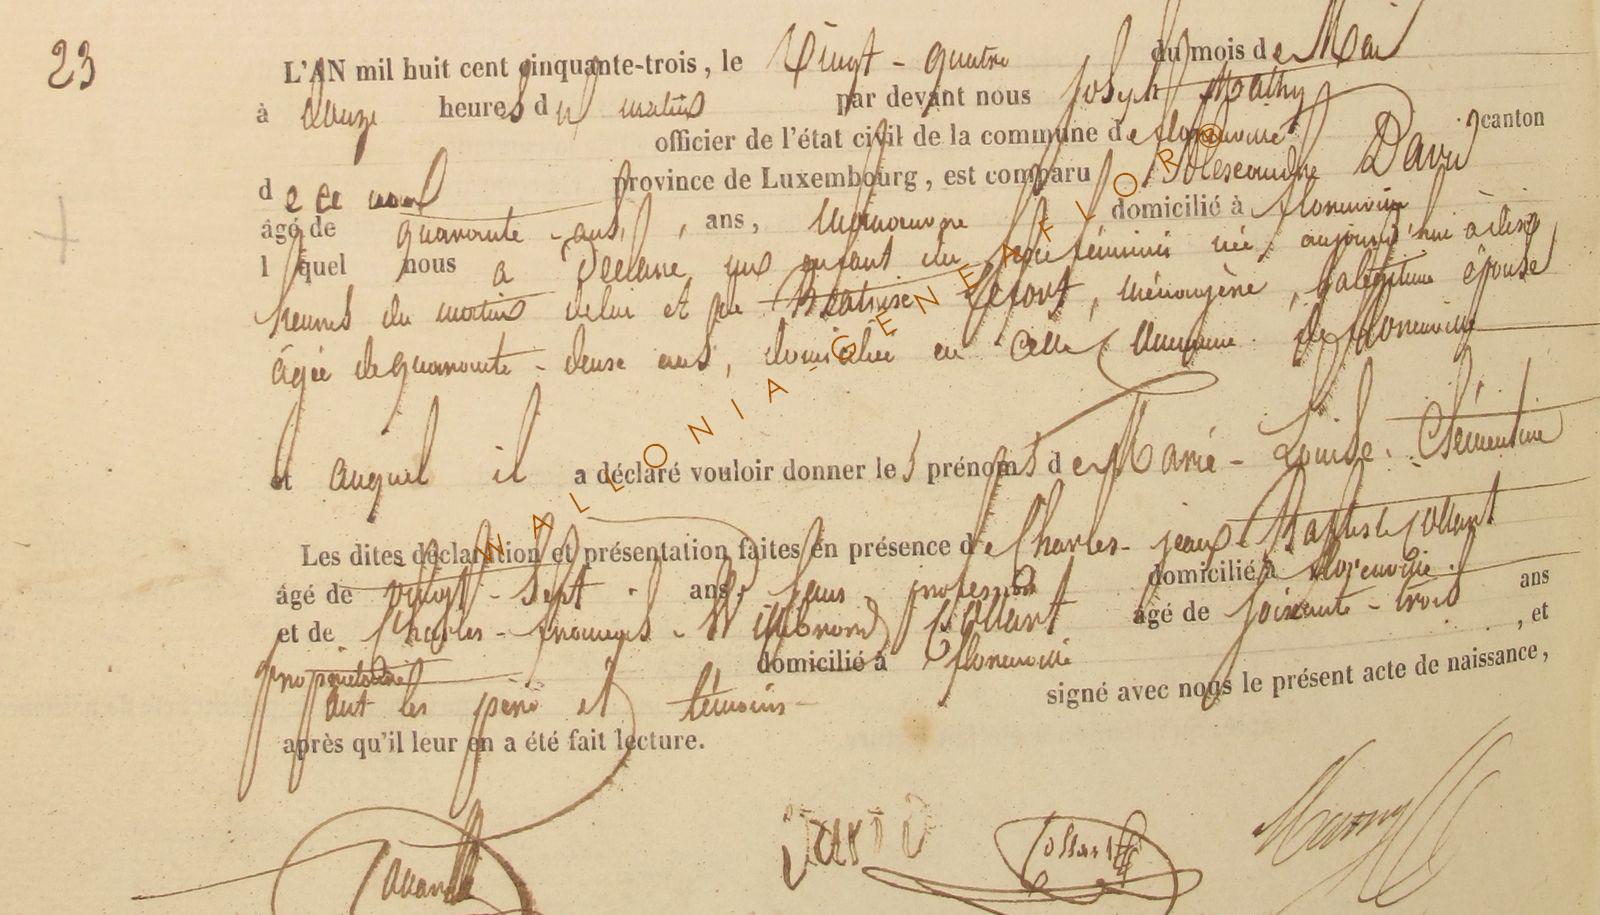 23
L'AN mil huit cent cinquante-trois, le Vingt-quatre du mois de Mai
à Douze heures du matin par devant nous Joseph Mathy
officier de l'état civil de la commune de florenville canton
de ce nom province de Luxembourg, est comparu Alexandre David
âgé de quarante-ans, ans, Manœuvre domicilié à florenville
lequel nous a Déclaré un enfant du sexe féminin née aujourd'hui à dix
heures du matin de lui et de Béatrise Lefort, ménagère, sa légitime épouse
âgée de quarante-deux ans, domiciliée en cette commune de florenville
et auquel il a déclaré vouloir donner les prénoms de Marie-Louise-Clémentine
Les dites déclaration et présentation faites en présence de Charles-jean-Baptiste Collart
âgé de vingt-sept ans, sans profession domicilié à florenville
et de Charles-françois-Willibrord Collart âgé de soixante-trois ans
propriétaire domicilié à florenville, et
ont les père et témoins signé avec nous le présent acte de naissance,
après qu'il leur en a été fait lecture.
David Collart
WALLONIA-GENEAFLORE